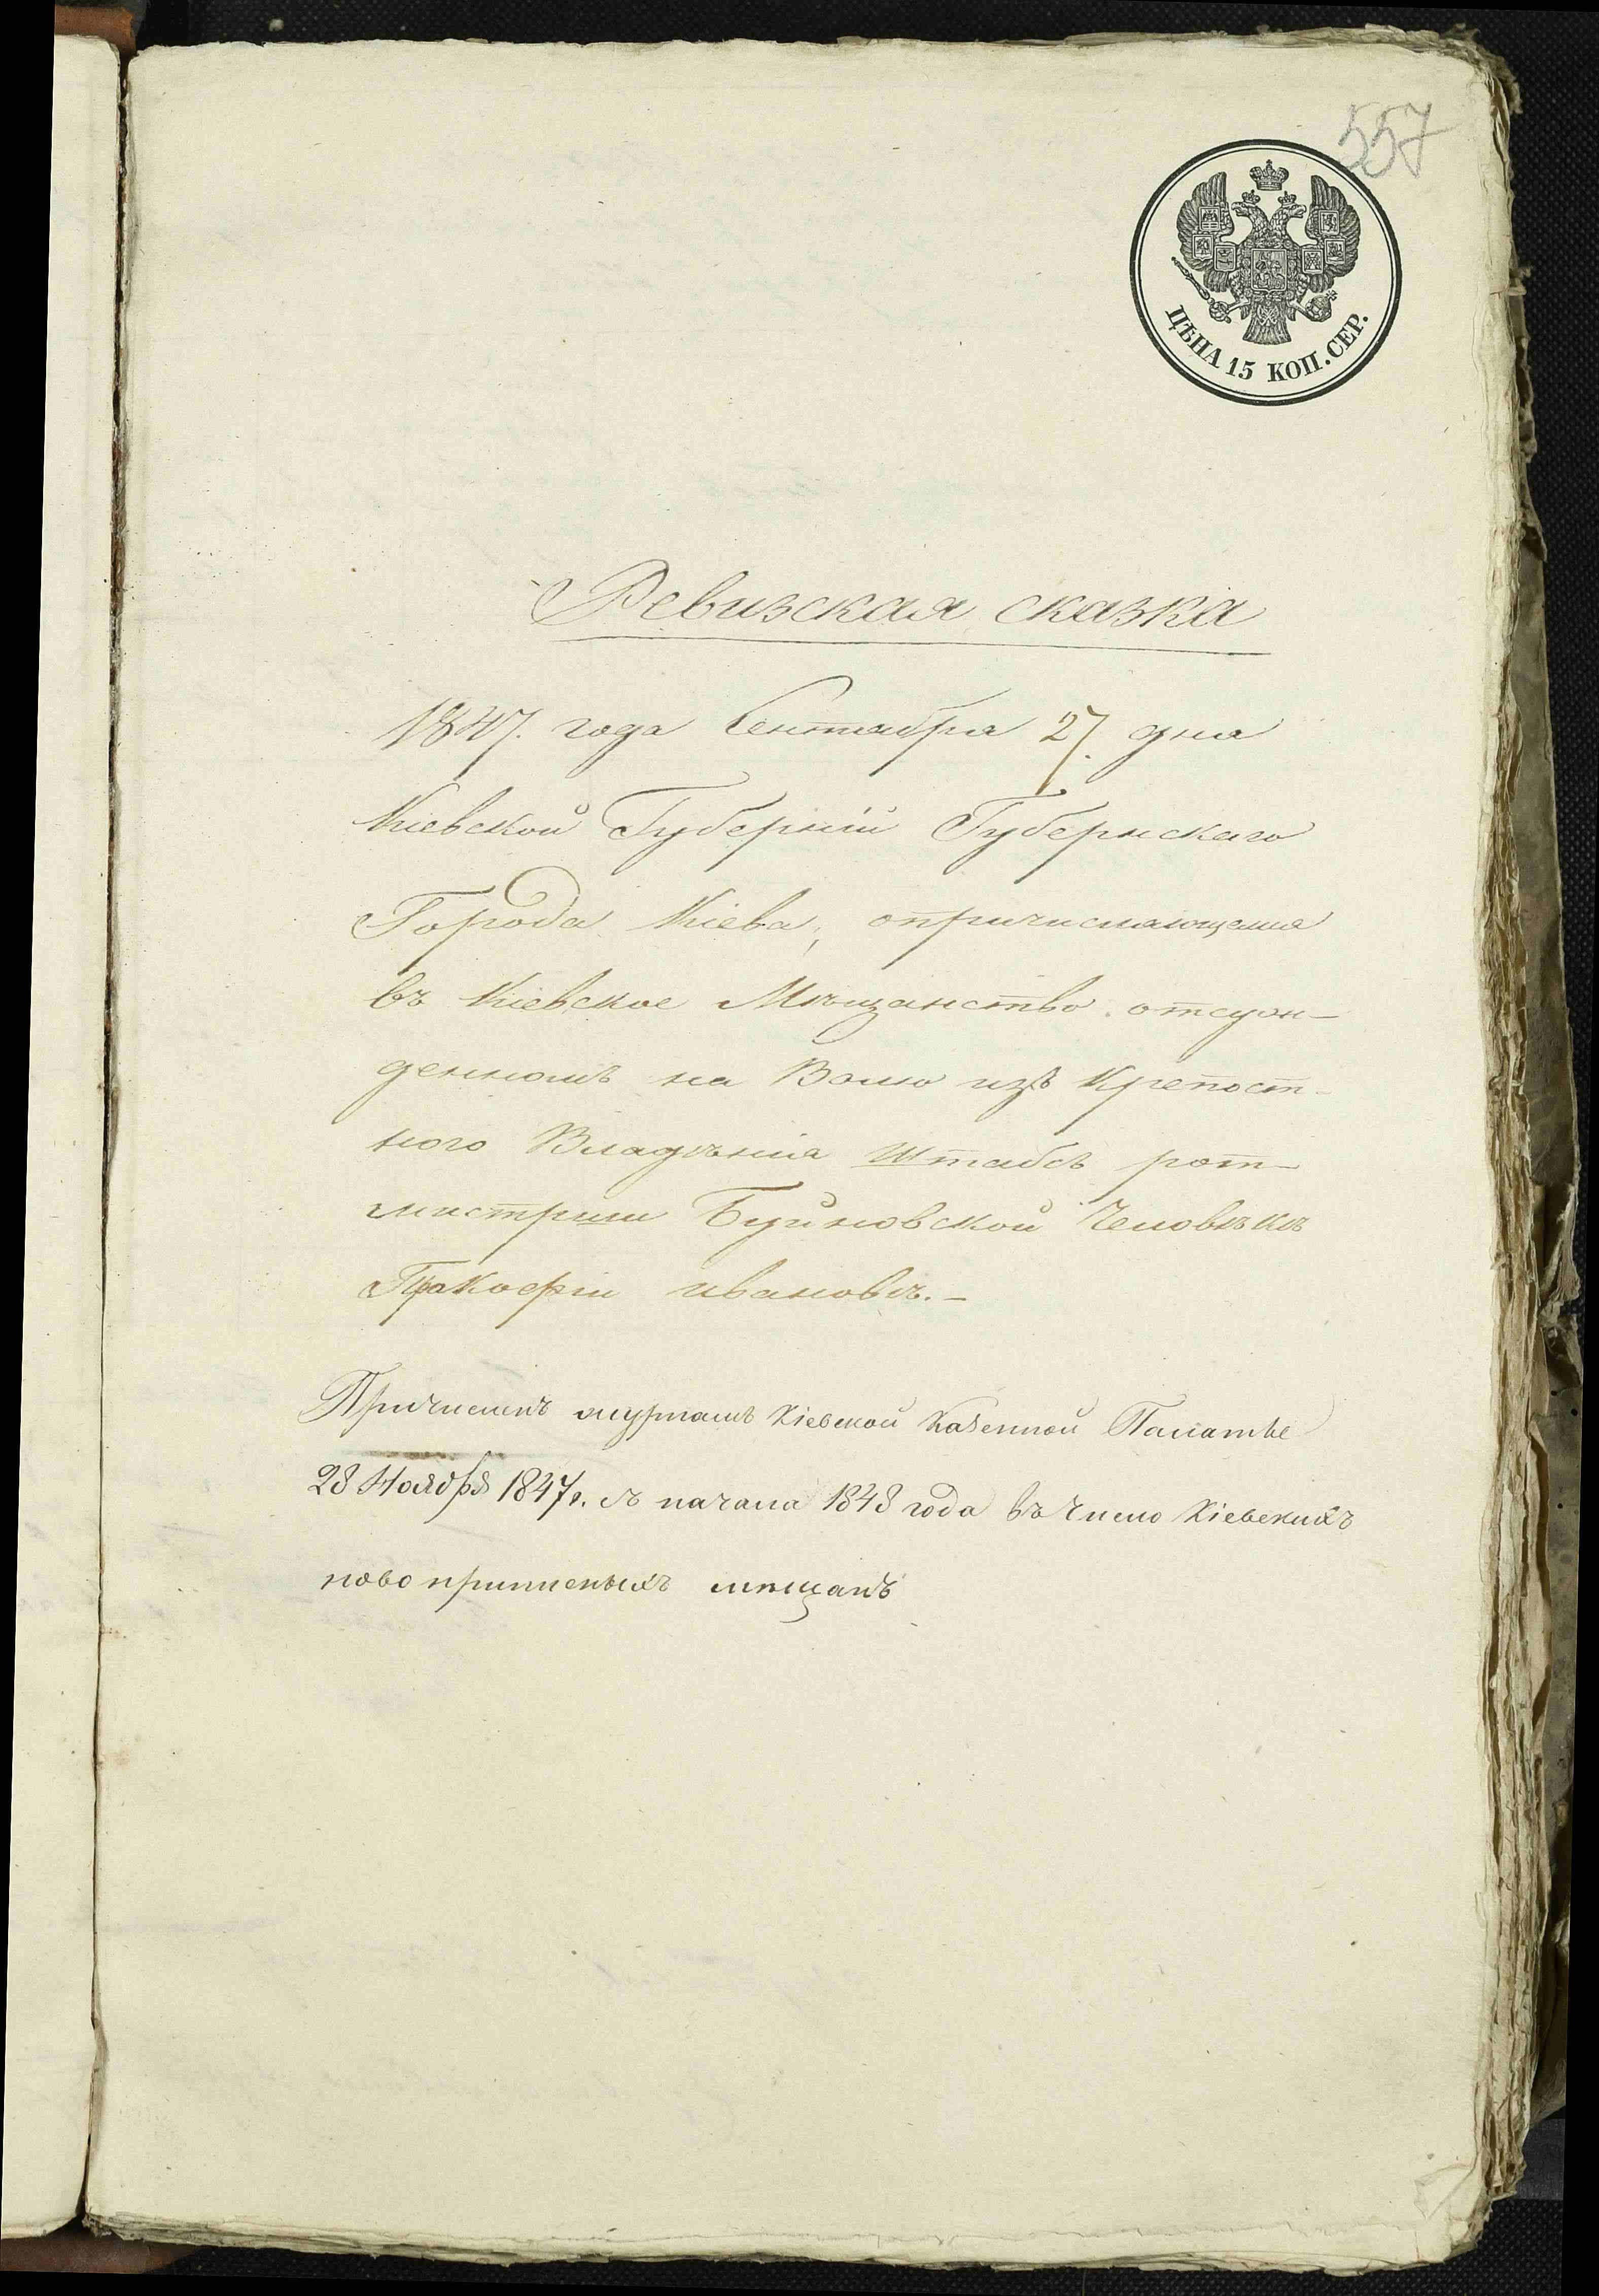 557
ЦѢНА 15 КОП. СЕР.
Ревизская сказка
1847. года Сентября 27. дня
Киевской Губерніи Губернскаго
Города Кіева, опричисляющемся
въ Кіевское Мѣщанство отсуж-
денномъ на Волю изъ Крепост-
ного Владѣнія Штабсъ рот-
мистрши Буйновской Человѣкѣ
Прокофіи ивановѣ.-
Причисленъ журналомъ Кіевской Казенной Палаты
28 Ноября 1847г. съ начала 1848 года въ число Кіевскихъ
ново мѣщанъ